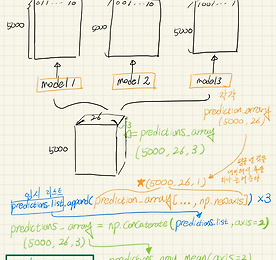 011 ... 10
001 ... 10
1001 ... 1
5000
5000
5000
model 1
model 2
model 3
각각
prediction_array
(5000, 26)
26
3
= predictions_array
(5000, 26, 3)
5000
★(5000, 26, 1)
predictions_list.append(prediction_array[..., np.newaxis]) ×3
predictions_array = np.concatenate(predictions_list, axis=2)
(5000, 26, 3)
predictions_array.mean(axis=2)